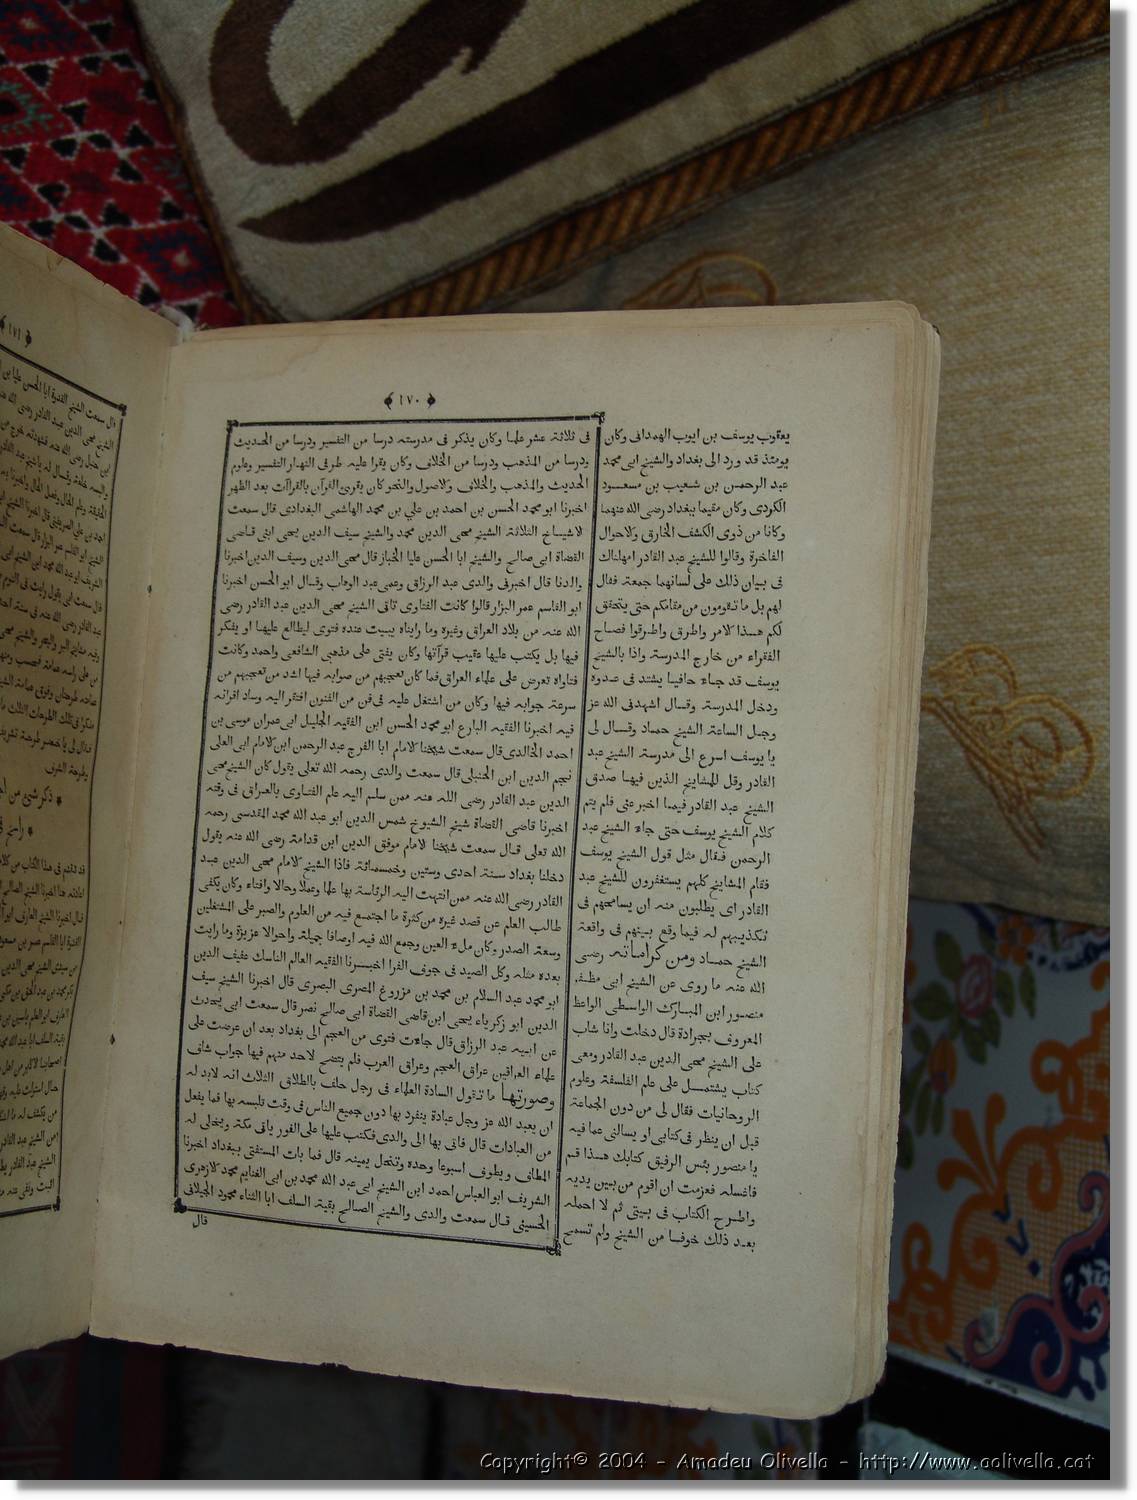 ﴿ ١٧٠ ﴾
فى ثلاثة عشر علما وكان يذكر فى مدرسته درسا من التفسير ودرسا من الحديث
ودرسا من المذهب ودرسا من الخلاف وكان يقرا عليه طرفى النهار التفسير وعلوم
الحديث والمذهب والخلاف والاصول والنحو وكان يقرئ القرآن بالقراآت بعد الظهر
اخبرنا ابو محمد الحسن بن احمد بن على بن محمد الهاشمى البغدادى قال سمعت
الاشياخ الثلاثة الشيخ محيى الدين محمد والشيخ سيف الدين يحيى ابنى قاضى
القضاة ابى صالح والشيخ ابا الحسن عليا الخباز قال محيى الدين وسيف الدين اخبرنا
والدنا قال اخبرنى والدى عبد الرزاق وعمى عبد الوهاب وقال ابو الحسن اخبرنا
ابو القاسم عمر البزار قالوا كانت الفتاوى تاتى الشيخ محيى الدين عبد القادر رضى
الله عنه من بلاد العراق وغيره وما رايناه يبيت عنده فتوى ليطالع عليها او يفكر
فيها بل يكتب عليها عقيب قرآتها وكان يفتى على مذهبى الشافعى واحمد وكانت
فتاواه تعرض على علماء العراق فما كان تعجبهم من صوابه فيها اشد من تعجبهم من
سرعة جوابه فيها وكان من اشتغل عليه فى فن من الفنون افتقر اليه وساد اقرانه
فيه اخبرنا الفقيه البارع ابو محمد الحسن ابن الفقيه الجليل ابى عمران موسى بن
احمد الخالدى قال سمعت شيخنا الامام ابا الفرج عبد الرحمن ابن الامام ابى العلى
نجم الدين ابن الحنبلى قال سمعت والدى رحمه الله تعلى يقول كان الشيخ محيى
الدين عبد القادر رضى الله عنه ممن سلم اليه علم الفتاوى بالعراق فى وقته
اخبرنا قاضى القضاة شيخ الشيوخ شمس الدين ابو عبد الله محمد المقدسى رحمه
الله تعلى قال سمعت شيخنا الامام موفق الدين ابن قدامة رضى الله عنه يقول
دخلنا بغداد سنة احدى وستين وخمسمائة فاذا الشيخ الامام محيى الدين عبد
القادر رضى الله عنه ممن انتهت اليه الرئاسة بها علما وعملا وحالا وافتاء وكان يكفى
طالب العلم عن قصد غيره من كثرة ما اجتمع فيه من العلوم والصبر على المشتغلين
وسعة الصدر وكان ملء العين وجمع الله فيه اوصافا جميلة واحوالا عزيزة وما رايت
بعده مثله وكل الصيد فى جوف الفرا اخبرنا الفقيه العالم الناسك عفيف الدين
ابو محمد عبد السلام بن محمد بن مزروع المصرى البصرى قال اخبرنا الشيخ سيف
الدين ابو زكرياء يحيى ابن قاضى القضاة ابى صالح نصر قال سمعت ابى يحدث
عن ابيه عبد الرزاق قال جاءت فتوى من العجم الى بغداد بعد ان عرضت على
علماء العراقين عراق العجم وعراق العرب فلم يتضح لاحد منهم فيها جواب شاف
وصورتها ما تقول السادة العلماء فى رجل حلف بالطلاق الثلاث انه لابد له
ان يعبد الله عز وجل عبادة ينفرد بها دون جميع الناس فى وقت تلبسه بها فما يفعل
من العبادات قال فاتى بها الى والدى فكتب عليها على الفور ياتى مكة ويخلى له
المطاف ويطوف اسبوعا وحده وتنحل يمينه قال فما بات المستفتى ببغداد اخبرنا
الشريف ابو العباس احمد ابن الشيخ ابى عبد الله محمد بن ابى الغنايم محمد الازهرى
الحسينى قال سمعت والدى والشيخ الصالح بقية السلف ابا الثناء محمود الجيلانى
قال
يعقوب يوسف بن ايوب الهمدانى وكان
يومئذ قد ورد الى بغداد والشيخ ابى محمد
عبد الرحمن بن شعيب بن مسعود
الكردى وكان مقيما ببغداد رضى الله عنهما
وكانا من ذوى الكشف الخارق والاحوال
الفاخرة وقالوا للشيخ عبد القادر امهلناك
فى بيان ذلك على لسانهما جمعة فقال
لهم بل ما تقومون من مقامكم حتى يتحقق
لكم هذا الامر واطرق واطرقوا فصاح
الفقراء من خارج المدرسة واذا بالشيخ
يوسف قد جاء حافيا يشتد فى عدوه
ودخل المدرسة وقال اشهدنى الله عز
وجل الساعة الشيخ حماد وقال لى
يا يوسف اسرع الى مدرسة الشيخ عبد
القادر وقل للمشايخ الذين فيها صدق
الشيخ عبد القادر فيما اخبر عنى فلم يتم
كلام الشيخ يوسف حتى جاء الشيخ عبد
الرحمن فقال مثل قول الشيخ يوسف
فقام المشايخ كلهم يستغفرون للشيخ عبد
القادر اى يطلبون منه ان يسامحهم فى
تكذيبهم له فيما وقع بينهم فى واقعة
الشيخ حماد ومن كراماته رضى
الله عنه ما روى عن الشيخ ابى مظفر
منصور ابن المبارك الواسطى الواعظ
المعروف بجرادة قال دخلت وانا شاب
على الشيخ محيى الدين عبد القادر ومعى
كتاب يشتمل على علم الفلسفة وعلوم
الروحانيات فقال لى من دون الجماعة
قبل ان ينظر فى كتابى او يسالنى عما فيه
يا منصور بئس الرفيق كتابك هذا قم
فاغسله فعزمت ان اقوم من بين يديه
واطرح الكتاب فى بيتى ثم لا احمله
بعد ذلك خوفا من الشيخ ولم تسمح
﴿ ١٧١ ﴾
قال سمعت الشيخ القدوة ابا الحسن عليا بن
الشيخ محيى الدين عبد القادر رضى الله
Copyright© 2004 - Amadeu Olivella - http://www.aolivella.cat